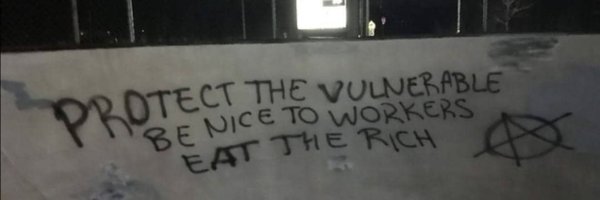 PROTECT THE VULNERABLE
BE NICE TO WORKERS
EAT THE RICH